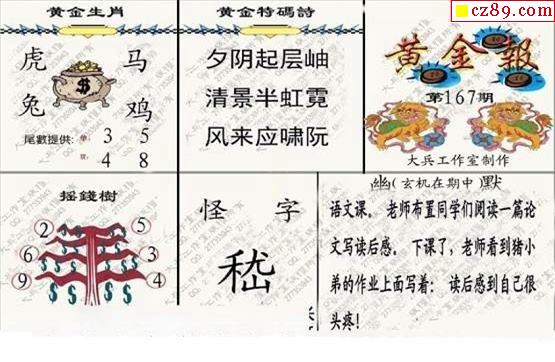 cz89.com
黄金生肖
虎 马
兔 鸡
尾數提供: 单: 3 5
双: 4 8
黄金特碼詩
夕阴起层岫
清景半虹霓
风来应啸阮
黄金報
第167期
大兵工作室制作
摇錢樹
2 5
6 3
9 4
怪字
嵇
幽(玄机在期中)默
语文课。老师布置同学们阅读一篇论
文写读后感。下课了，老师看到猪小
弟的作业上面写着：读后感到自己很
头疼!